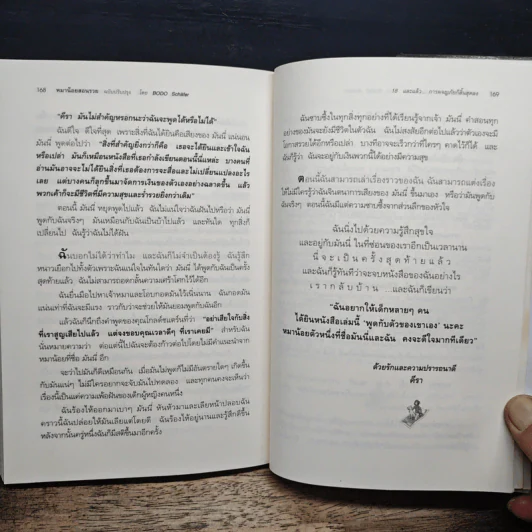 168 หมาน้อยสอนรวย ฉบับปรับปรุง โดย BODO Schäfer
"คีรา มันไม่สำคัญหรอกนะว่าฉันจะพูดได้หรือไม่ได้"
ฉันดีใจ ดีใจที่สุด เพราะสิ่งที่ฉันได้ยินคือเสียงของ มันนี่ แน่นอน
มันนี่ พูดต่อไปว่า "สิ่งที่สำคัญยิ่งกว่าก็คือ เธอจะได้ยินและเข้าใจฉัน
หรือเปล่า มันก็เหมือนหนังสือที่เธอกำลังเขียนตอนนี้นี่แหละ บางคนที่
อ่านมันอาจจะไม่ได้ยินสิ่งที่เธอต้องการจะสื่อและไม่เปลี่ยนแปลงอะไร
เลย แต่บางคนก็ลุกขึ้นมาจัดการเงินของตัวเองอย่างฉลาดขึ้น แล้ว
พวกเค้าก็จะมีชีวิตที่มีความสุขและร่ำรวยยิ่งกว่าเดิม"
ตอนนี้ มันนี่ หยุดพูดไปแล้ว ฉันไม่แน่ใจว่าฉันฝันไปหรือว่า มันนี่
พูดกับฉันจริงๆ มันเหมือนกับฉันเป็นบ้าไปแล้ว และทันใด ทุกสิ่งก็
เปลี่ยนไป ฉันรู้ว่าฉันไม่ได้ฝัน
ฉันบอกไม่ได้ว่าทำไม และฉันก็ไม่จำเป็นต้องรู้ ฉันรู้สึก
หนาวเยือกไปทั้งตัวเพราะฉันแน่ใจในทันใดว่า มันนี่ ได้พูดกับฉันเป็นครั้ง
สุดท้ายแล้ว ฉันไม่สามารถอดกลั้นความเศร้าโศกไว้ได้อีก
ฉันยื่นมือไปหาเจ้าหมาและโอบกอดมันไว้แน่นแน่น ฉันกอดมัน
แน่นเท่าที่ฉันจะมีแรง ราวกับว่าจะช่วยให้มันยอมพูดกับฉันอีก
แล้วฉันก็นึกถึงคำพูดของคุณโกลด์ชแตร์นที่ว่า "อย่าเสียใจกับสิ่ง
ที่เราสูญเสียไปแล้ว แต่จงขอบคุณเวลาดีๆ ที่เราเคยมี" สำหรับฉัน
นั่นหมายความว่า ต่อแต่นี้ไปฉันจะต้องก้าวต่อไปโดยไม่มีคำแนะนำจาก
หมาน้อยที่ชื่อ มันนี่ อีก
จะว่าไปมันก็ดีเหมือนกัน เมื่อมันไม่พูดก็ไม่มีอันตรายใดๆ เกิดขึ้น
กับมันแน่ๆ ไม่มีใครอยากจะจับมันไปทดลอง และทุกคนคงจะเห็นว่า
เรื่องนี้เป็นแค่ความเพ้อฝันของเด็กผู้หญิงคนหนึ่ง
ฉันร้องไห้ออกมาเบาๆ มันนี่ หันหัวมาและเลียหน้าปลอบฉัน
คราวนี้ฉันปล่อยให้มันเลียแต่โดยดี ฉันร้องไห้อยู่นานและรู้สึกดีขึ้น
หลังจากนั้นครู่หนึ่งฉันก็มีสติขึ้นมาอีกครั้ง
169
ฉันซาบซึ้งในทุกสิ่งทุกอย่างที่ได้เรียนรู้จากเจ้า มันนี่ คำสอนทุก
อย่างของมันจะยังมีชีวิตในตัวฉัน ฉันไม่สงสัยอีกต่อไปแล้วว่าตัวเองจะมี
โอกาสรวยได้อีกหรือเปล่า บางทีอาจจะเร็วกว่าที่ใครๆ คาดไว้ก็ได้ และ
ฉันก็รู้ว่า ฉันจะอยู่กับเงินพวกนี้ได้อย่างมีความสุข
ตอนนี้ฉันสามารถเล่าเรื่องราวของฉัน ฉันสามารถแต่งเรื่อง
ได้ไม่มีใครรู้ว่าฉันจินตนาการเสียงของ มันนี่ ขึ้นมาเอง หรือว่ามันพูดกับ
ฉันจริงๆ ตอนนี้ฉันมีแต่ความซาบซึ้งจากส่วนลึกของหัวใจ
ฉันนั่งไปด้วยความรู้สึกสุขใจ
และอยู่กับมันนี่ ในที่ซ่อนของเราอีกเป็นเวลานาน
นี่จะเป็นครั้งสุดท้ายแล้ว
และฉันก็รู้ทันทีว่าจะจบหนังสือของฉันอย่างไร
เรากลับบ้าน ...และฉันก็เขียนว่า
"ฉันอยากให้เด็กหลายๆ คน
ได้ยินหนังสือเล่มนี้ 'พูดกับตัวของเขาเอง' นะคะ
หมาน้อยตัวหนึ่งที่ชื่อมันนี่และฉัน คงจะดีใจมากทีเดียว"
ด้วยรักและความปรารถนาดี
คีรา